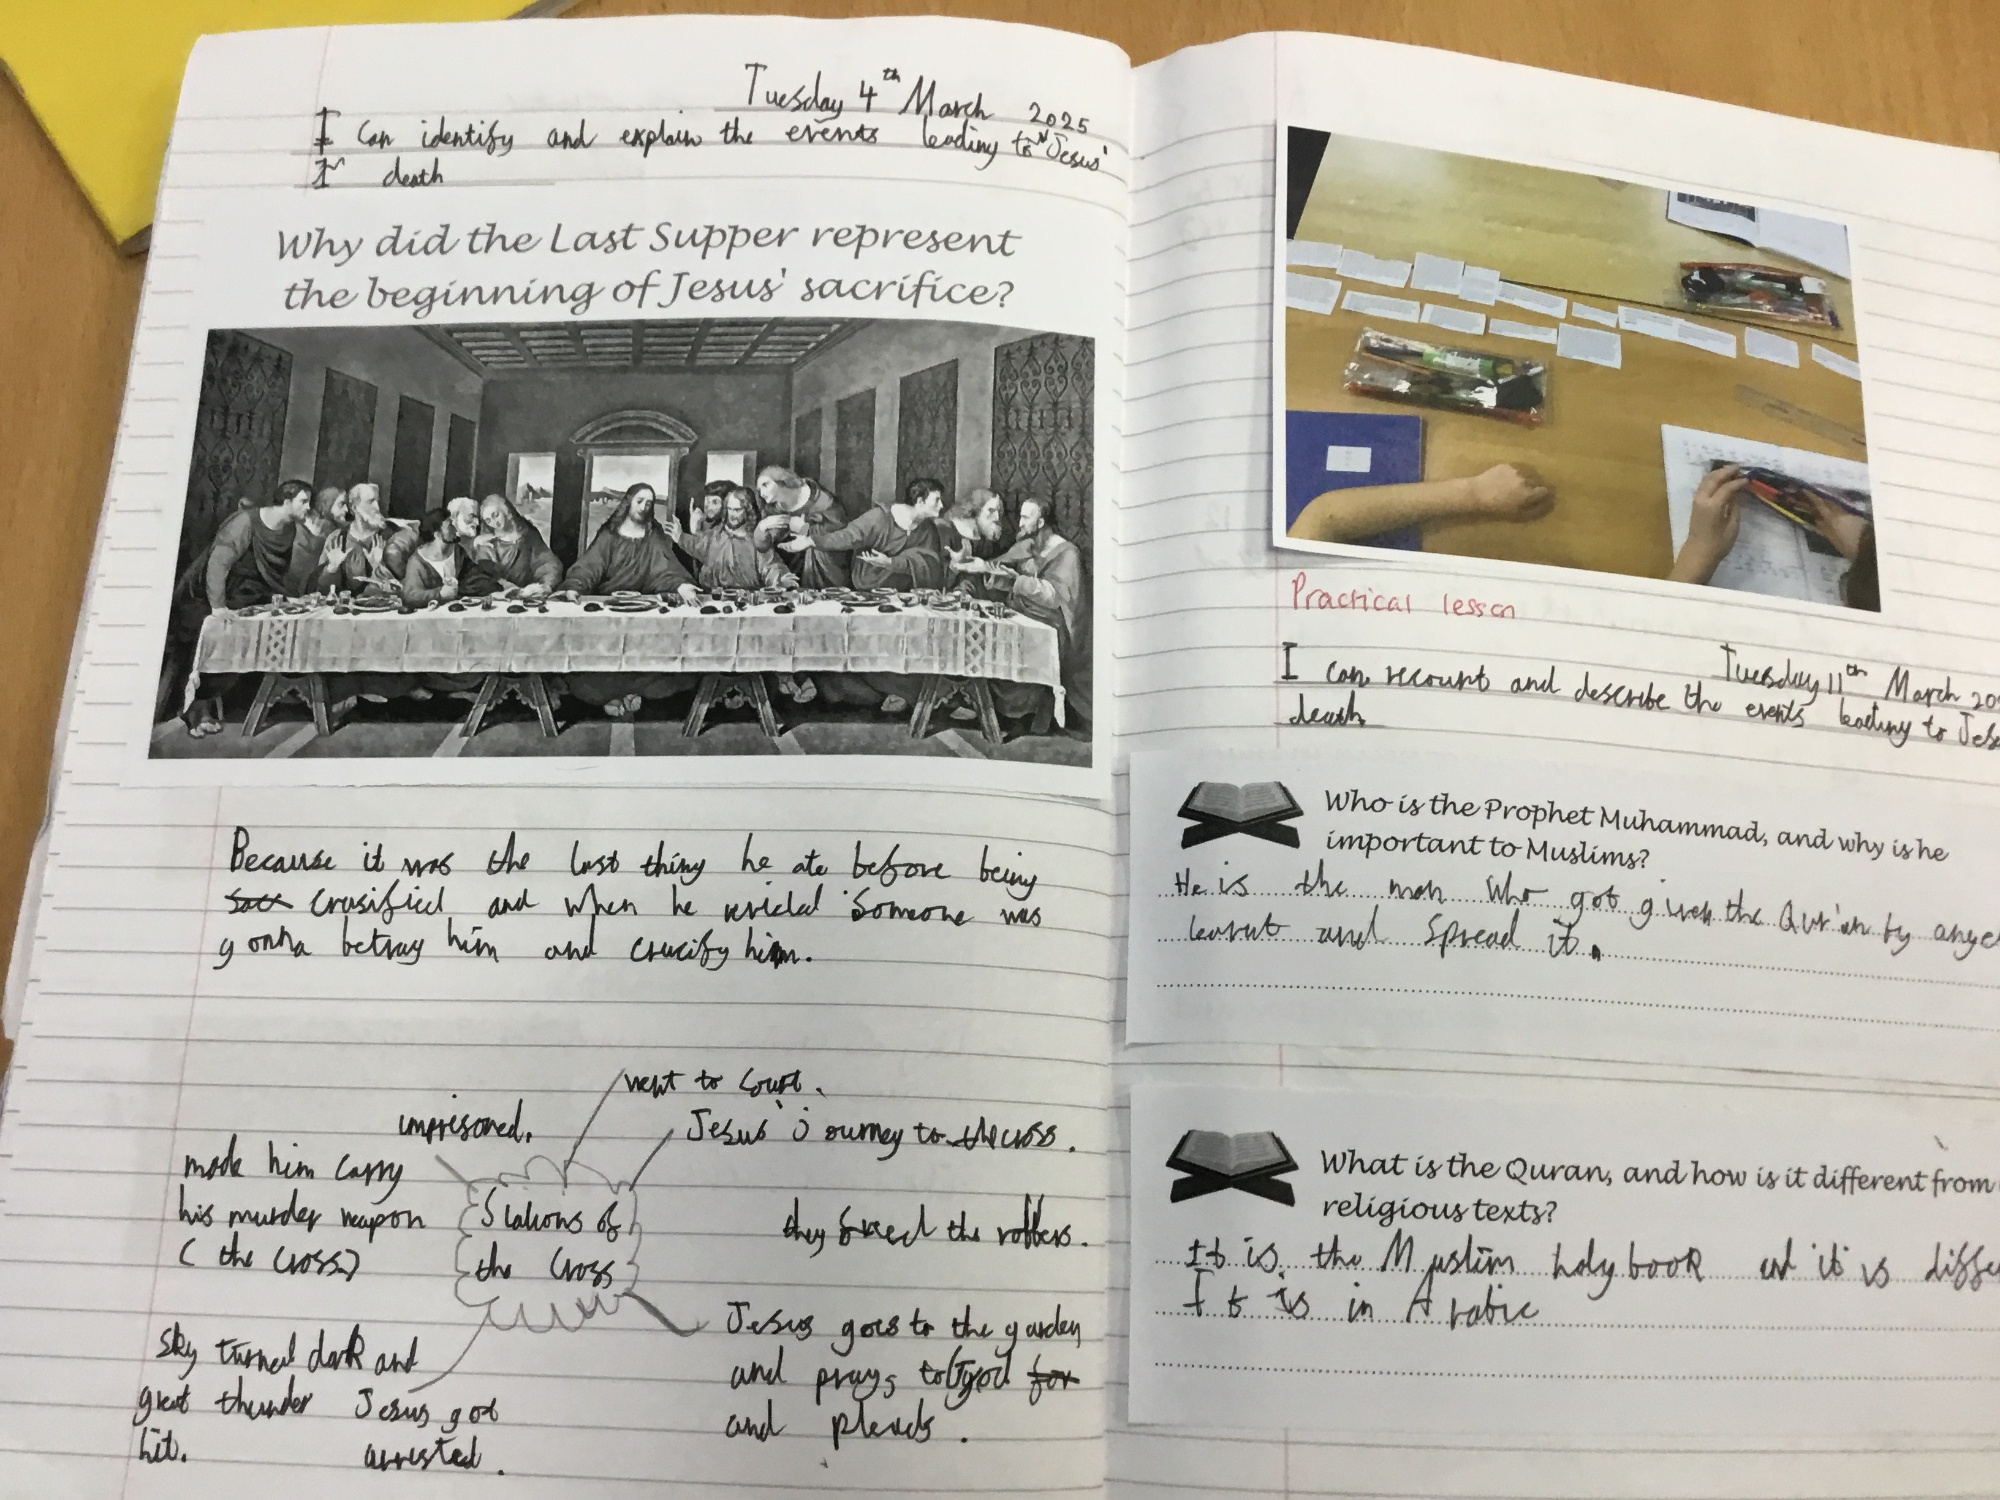 Tuesday 4th March 2025
I can identify and explain the events leading to Jesus'
death
Why did the Last Supper represent
the beginning of Jesus' sacrifice?
Because it was the last thing he ate before being
crusified and when he someone was
gonna betray him and crucify him.
went to court.
imprisoned.
Jesus' journey to the cross.
made him carry
his murder weapon
(the cross)
Stations of
the Cross
they freed the robbers.
Jesus goes to the garden
and prays to god for
and pleads.
sky turned dark and
great thunder
hit.
Jesus got
arrested.
Practical lesson
Tuesday 11th March 20
I can recount and describe the events leading to Jes
death
Who is the Prophet Muhammad, and why is he
important to Muslims?
He is the man who got given the Qur'an by ange
learnt and spread it.
What is the Quran, and how is it different from
religious texts?
It is the Muslim holy book and it is diffe
It is in Arabic